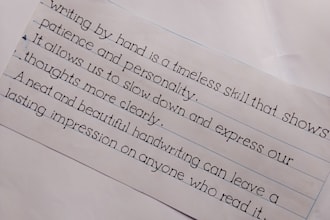 writing by hand is a timeless skill that shows
patience and personality.
It allows us to slow down and express our
thoughts more clearly.
A neat and beautiful handwriting can leave a
lasting impression on anyone who read it.